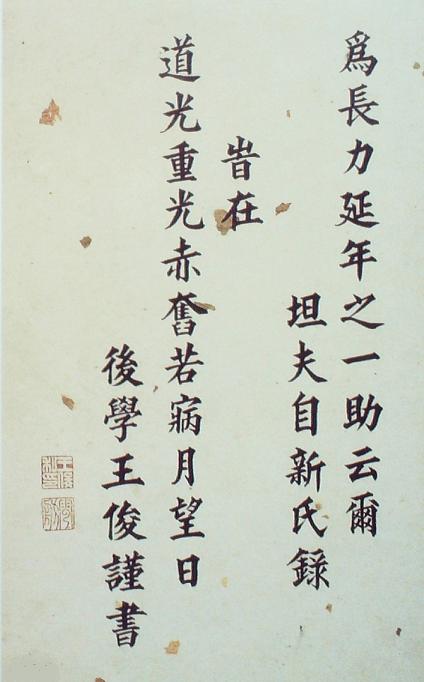 爲長力延年之一助云爾
坦夫自新氏錄
旹在
道光重光赤奮若病月望日
後學王俊謹書